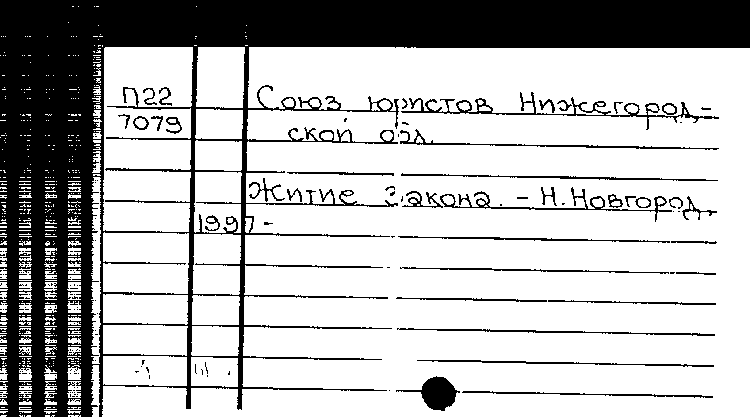 П22 Союз юристов Нижегород-
7079 ской обл.
Житие Закона. - Н.Новгород,
1997-